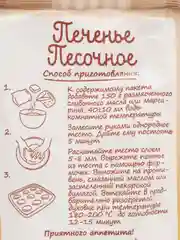 Печенье
Песочное
Способ приготовления:
1.
К содержимому пакета
добавьте 150 г размягченного
сливочного масла или марга-
рина, 40±10 мл воды
комнатной температуры.
2.
Замесите руками однородное
тесто. Дайте ему постоять
5 минут.
3.
Раскатайте тесто слоем
5-8 мм. Вырежьте печенье
из теста с помощью фор-
мочки. Выложите на проти-
вень, смазанный маслом или
застеленный пекарской
бумагой. Выпекайте в пред-
варительно разогретой
духовке при температуре
180-200 °C до готовности
12-15 минут.
Приятного аппетита!